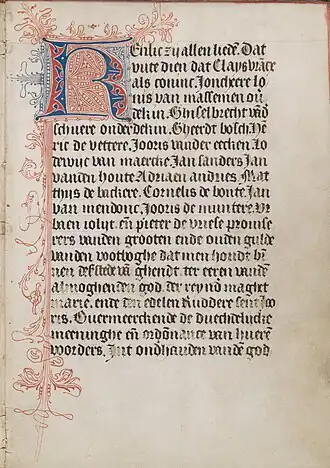 Renlic zij allen liedē. Dat
vute dien dat Clays vrāce
als coninc. Joncheere Lo
nis van massemen oū
dekin. Ghiselbrecht vūd
schuere onderdekin. Gheerdt bosch hē
ric de vettere. Jooris vander eecken. Lo
dewijc van maercke. Jan sanders Jan
vanden houte Adriaen andries. Mat
thijs de backere. Cornelis de bonte. Jan
van mendonc. Jooris de muntere. Vr
baen iolijt. eñ pieter de vriese prouise
rers vanden grooten ende ouden gulde
vanden voetboghe dat men houdt bī
nen der stede vā ghendt. ter eeren vandē
almoghenden god. der reynd maghet
marie. ende den edelen Ruddere sent Jo
ris. Ouermeerckende de duechdelicke
meeninghe eñ ordōnance van hueren
voorders. Int ondhauden vandē god